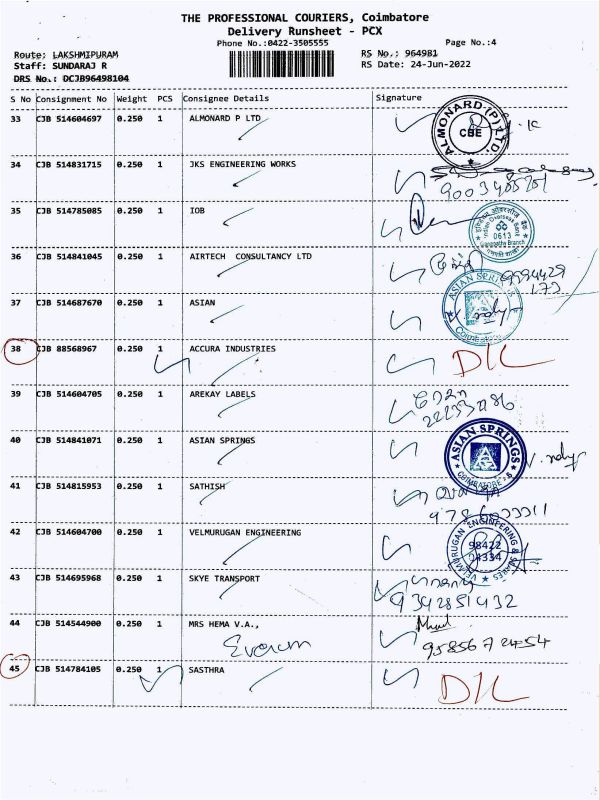 THE PROFESSIONAL COURIERS, Coimbatore
Delivery Runsheet - PCX
Phone No.:0422-3505555 Page No.:4
Route: LAKSHMIPURAM RS No.: 964981
Staff: SUNDARAJ R RS Date: 24-Jun-2022
DRS No.: DCJB96498104
S No Consignment No Weight PCS Consignee Details Signature
33 CJB 514604697 0.250 1 ALMONARD P LTD
ALMONARD (P) LTD. CBE
34 CJB 514831715 0.250 1 JKS ENGINEERING WORKS
35 CJB 514785085 0.250 1 IOB
Indian Overseas Bank 0613 Ganapathy Branch
36 CJB 514841045 0.250 1 AIRTECH CONSULTANCY LTD
37 CJB 514687670 0.250 1 ASIAN
ASIAN SPRINGS Coimbatore
38 CJB 88568967 0.250 1 ACCURA INDUSTRIES DIL
39 CJB 514604705 0.250 1 AREKAY LABELS
40 CJB 514841071 0.250 1 ASIAN SPRINGS
ASIAN SPRINGS COIMBATORE - 6
41 CJB 514815953 0.250 1 SATHISH
42 CJB 514604700 0.250 1 VELMURUGAN ENGINEERING
VELMURUGAN ENGINEERING & 98422
43 CJB 514695968 0.250 1 SKYE TRANSPORT
9342851432
44 CJB 514544900 0.250 1 MRS HEMA V.A.,
45 CJB 514784105 0.250 1 SASTHRA DIL